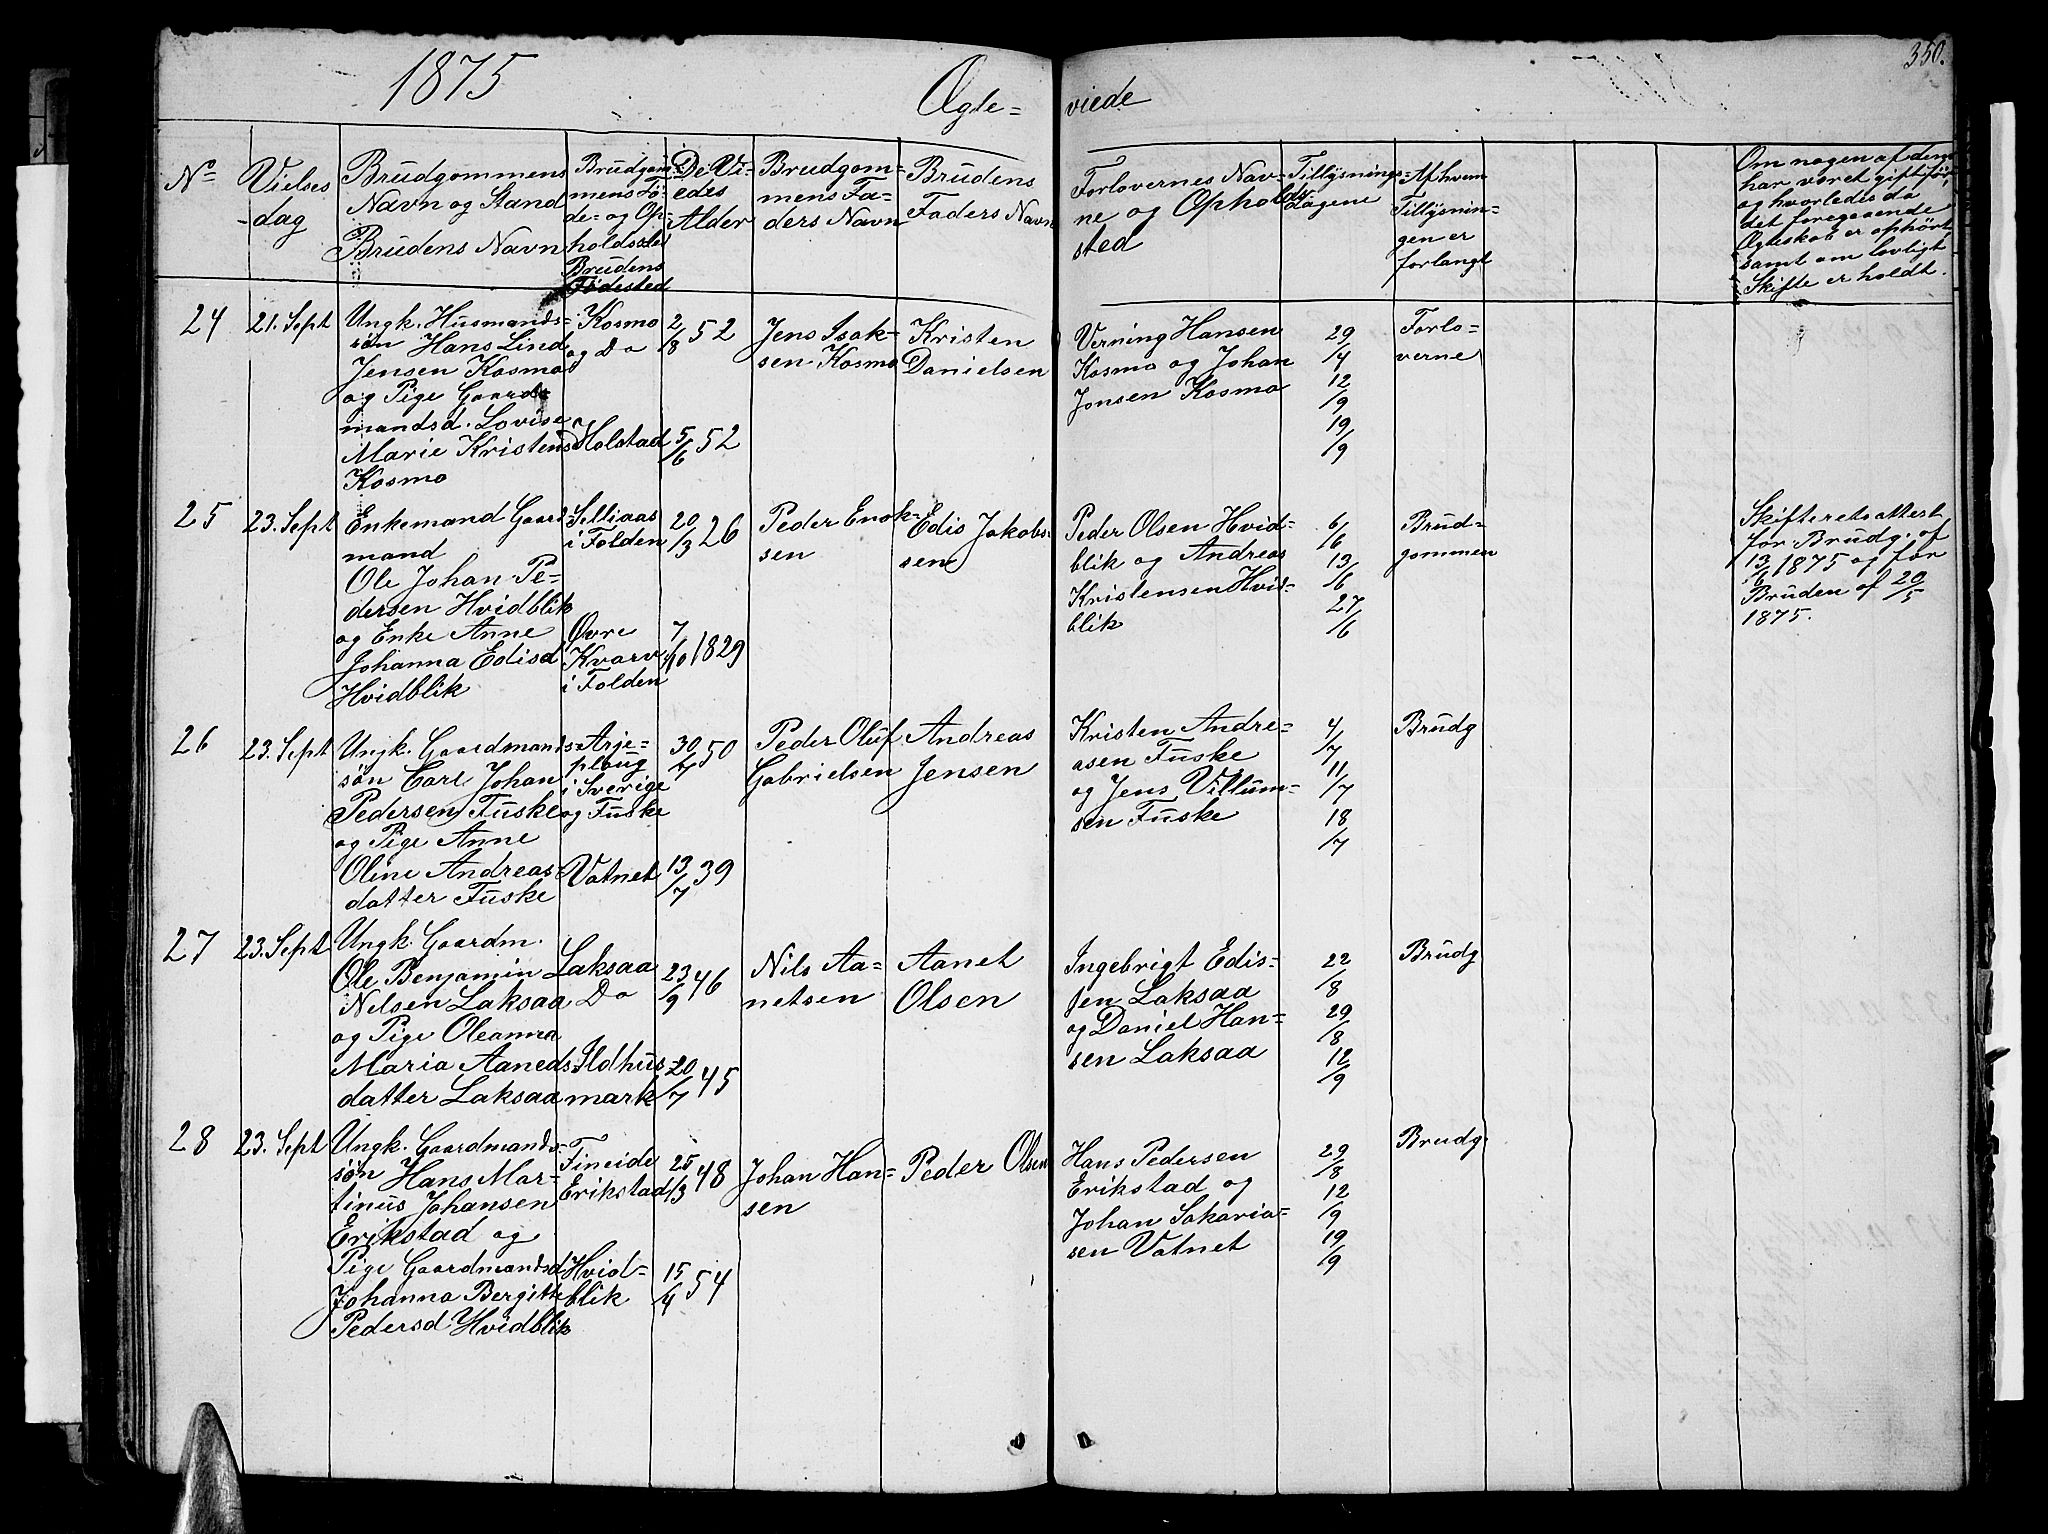 1875
Ægte=
viede
350.
No
Vielses
-dag
Brudgommens
Navn og Stand
Brudens Navn
Brudgom=
mens Fø=
de= og Op=
holdssted
Brudens
Fødested
De Vi=
edes
Alder
Brudgom=
mens Fa=
ders Navn
Brudens
Faders Navn
Forlovernes Nav=
ne og Opholds
sted
Tillysnings=
dagene
Af hvem
Tillysnin=
gen er
forlangt
Om nogen af dem
har været gift før,
og hvorledes da
det foregaaende
Ægteskab er ophørt
samt om lovligt
Skifte er holdt.
24
21. Sept
Ungk. Husmands=
søn Hans Lind
Jensen Kosmo
og Pige Gaard=
mandsd. Lovise
Marie Kristensd
Kosmo
Kosmo
og Do
Holstad
2/8 52
5/6 52
Jens Isak=
sen Kosmo
Kristen
Danielsen
Verning Hansen
Kosmo og Johan
Jonsen Kosmo
29/4
12/9
19/9
Forlo=
verne
25
23. Sept
Enkemand Gaard=
mand
Ole Johan Pe=
dersen Hvidblik
og Enke Anne
Johanna Edisd
Hvidblik
Selliaas
i Folden
Øvre
Kvarv
i Folden
20/3 26
7/10 1829
Peder Enok=
sen
Edis Jakob=
sen
Peder Olsen Hvid=
blik og Andreas
Kristensen Hvid=
blik
6/6
13/6
27/6
Brud=
gommen
Skifteretsattest
for Brudg. af
13/6 1875 og for
Bruden af 20/5
1875.
26
23. Sept
Ungk. Gaardmands=
søn Carl Johan
Pedersen Fuske
og Pige Anne
Oline Andreas=
datter Fuske
Arje=
ploug
i Sverige
og Fuske
Vatnet
30/7 50
13/7 39
Peder Oluf
Gabrielsen
Andreas
Jensen
Kristen Andre=
asen Fuske
og Jens Villum=
sen Fuske
4/7
11/7
18/7
Brudg
27
23. Sept
Ungk. Gaardm.
Ole Benjamin
Nelsen Laksaa
og Pige Oleanna
Maria Aaneds
datter Laksaa
Laksaa
Do
Ildhus=
mark
23/9 46
20/7 45
Nils Aa=
netsen
Aanet
Olsen
Ingebrigt Edis=
sen Laksaa
og Daniel Han=
sen Laksaa
22/8
29/8
12/9
Brudg
28
23. Sept
Ungk. Gaardmands=
søn Hans Mar=
tinus Johansen
Erikstad og
Pige Gaardmandsd
Johanna Bergitte
Pedersd Hvidblik
Fineide
Erikstad
Hvid=
blik
25/3 48
15/4 54
Johan Han=
sen
Peder Olsen
Hans Pedersen
Erikstad og
Johan Sakaria=
sen Vatnet
29/8
12/9
19/9
Brudg.